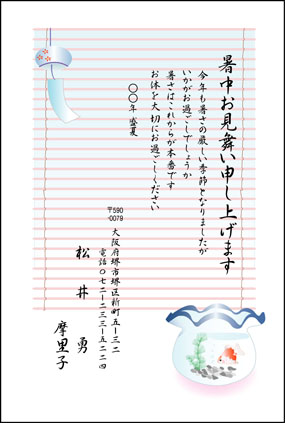 暑中お見舞い申し上げます
今年も暑さの厳しい季節となりましたが
いかがお過ごしでしょうか
暑さはこれからが本番です
お体を大切にお過ごしください
〇〇年 盛夏
〒590-0079
大阪府堺市堺区新町五-三二
電話〇七二-二三三-五二二四
松井 勇
摩里子